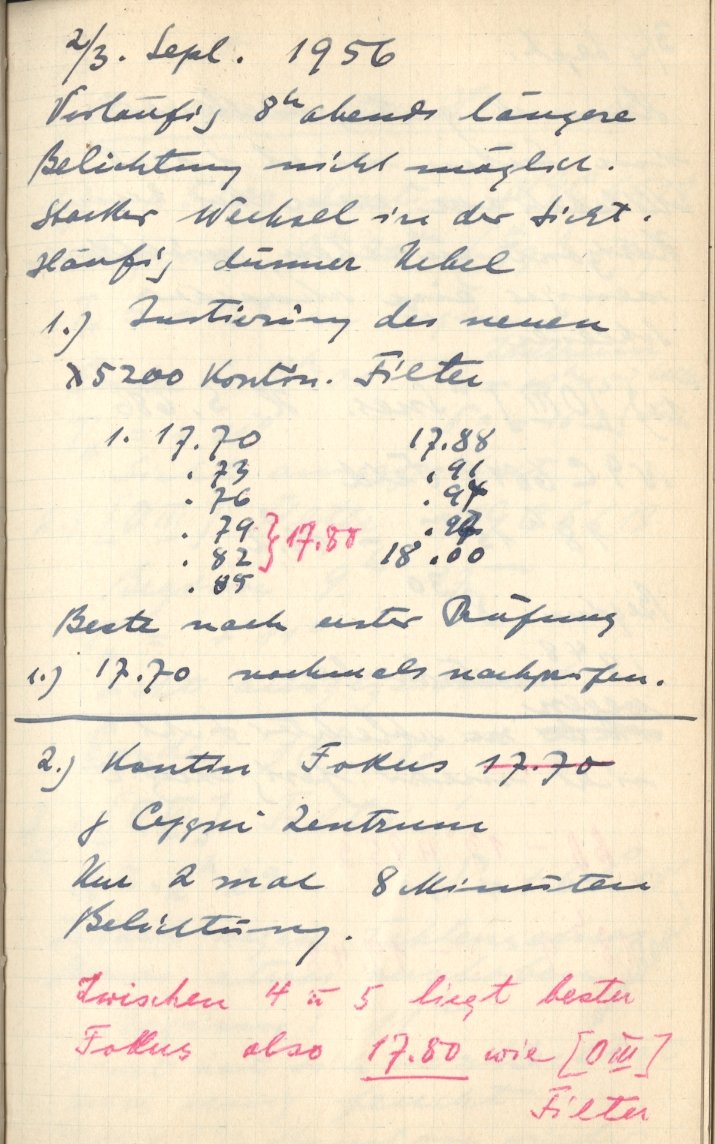 2/3. Sept. 1956
Vorläufig 8h abends längere
Belichtung nicht möglich.
Starker Wechsel in der Sicht.
Häufig dünner Nebel
1.) Justierung des neuen
λ5200 Kontin. Filter
1. 17.70 17.88
.73 .91
.76 .94
.79 } 17.80 .97
.82 18.00
.85
Beste nach erster Prüfung
1.) 17.70 nochmals nachprüfen.
2.) Kontin Fokus 17.70
γ Cygni Zentrum
Nur 2 mal 8 Minuten
Belichtung.
Zwischen 4 u 5 liegt bester
Fokus also 17.80 wie [OIII]
Filter